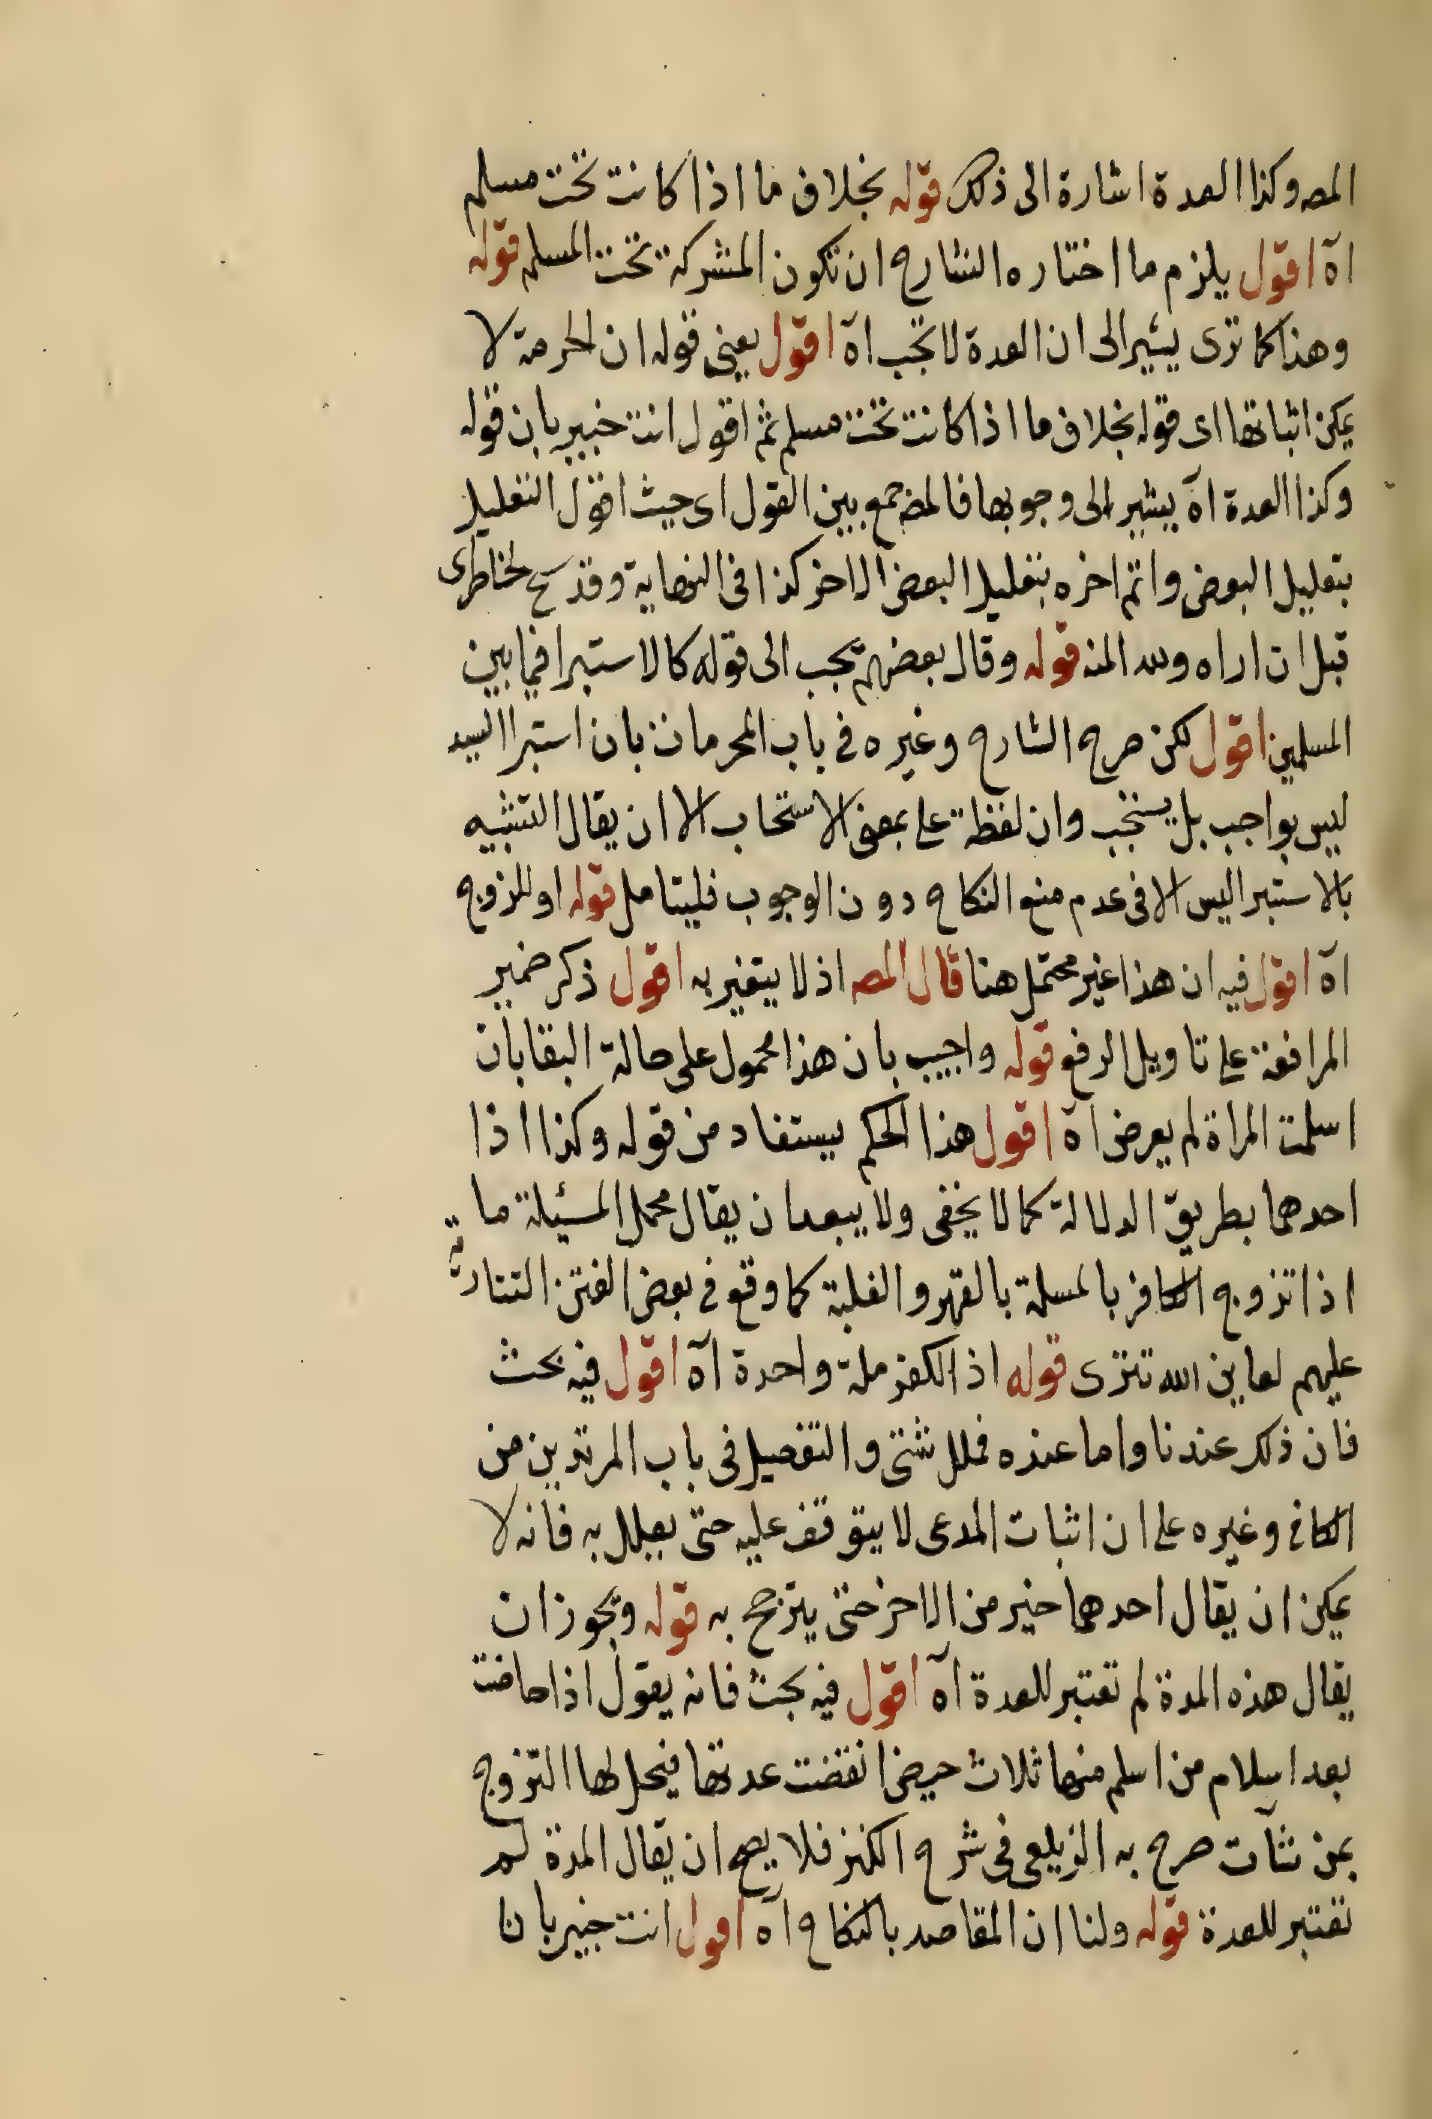 المصه وكذا العدة اشارة الى ذلك قوله بخلاف ما اذا كانت تحت مسلم
اه اقول يلزم ما اختاره الشارح ان تكون المشركة تحت المسلم قوله
وهذا كما ترى يشير الى ان العدة لا تجب اه اقول يعنى قوله ان الحرمة لا
يمكن اثباتها اى قوله بخلاف ما اذا كانت تحت مسلم ثم اقول انت خبير بان قوله
وكذا العدة اه يشير الى وجوبها فالمص جمع بين القول اى حيث اقول التعليل
بتعليل البعض واتم اخره بتعليل البعض الاخر كذا فى النهاية وقد سنح لخاطرى
قبل ان اراه ولله المنه قوله وقال بعضهم يجب الى قوله كالاستبرا فيما بين
المسلمين اقول لكن صرح الشارح وغيره فى باب المحرمات بان استبرا السيد
ليس بواجب بل يستحب وان لفظة على بمعنى الاستحباب الا ان يقال التشبيه
بالاستبرا ليس الا فى عدم منع النكاح دون الوجوب فليتامل قوله او للزوج
اه اقول فيه ان هذا غير محتمل هنا قال المصه اذ لا يتغير به اقول ذكر ضمير
المرافعة على تاويل الرفع قوله واجيب بان هذا محمول على حالة البقا بان
اسلمت المراة لم يعرض اه اقول هذا الحكم يستفاد من قوله وكذا اذا
احدهما بطريق الدلالة كما لا يخفى ولا يبعد ان يقال محمل المسئلة ما
اذا تزوج الكافر بالمسلمة بالقهر والغلبة كما وقع فى بعض الفتن التتارية
عليهم لعاين الله تترى قوله اذ الكفر ملة واحدة اه اقول فيه بحث
فان ذلك عندنا واما عنده فملل شتى والتفصيل فى باب المرتدين من
الكافى وغيره على ان اثبات المدعى لا يتوقف عليه حتى يعلل به فانه لا
يمكن ان يقال احدهما خير من الاخر حتى يترجح به قوله ويجوز ان
يقال هذه المدة لم تعتبر للعدة اه اقول فيه بحث فانه يقول اذا حاضت
بعد اسلام من اسلم منهما ثلاث حيض انقضت عدتها فيحل لها التزوج
بمن شآت صرح به الزيلعى فى شرح الكنز فلا يصح ان يقال المدة لم
تعتبر للعدة قوله ولنا ان المقاصد بالنكاح اه اقول انت خبير بان